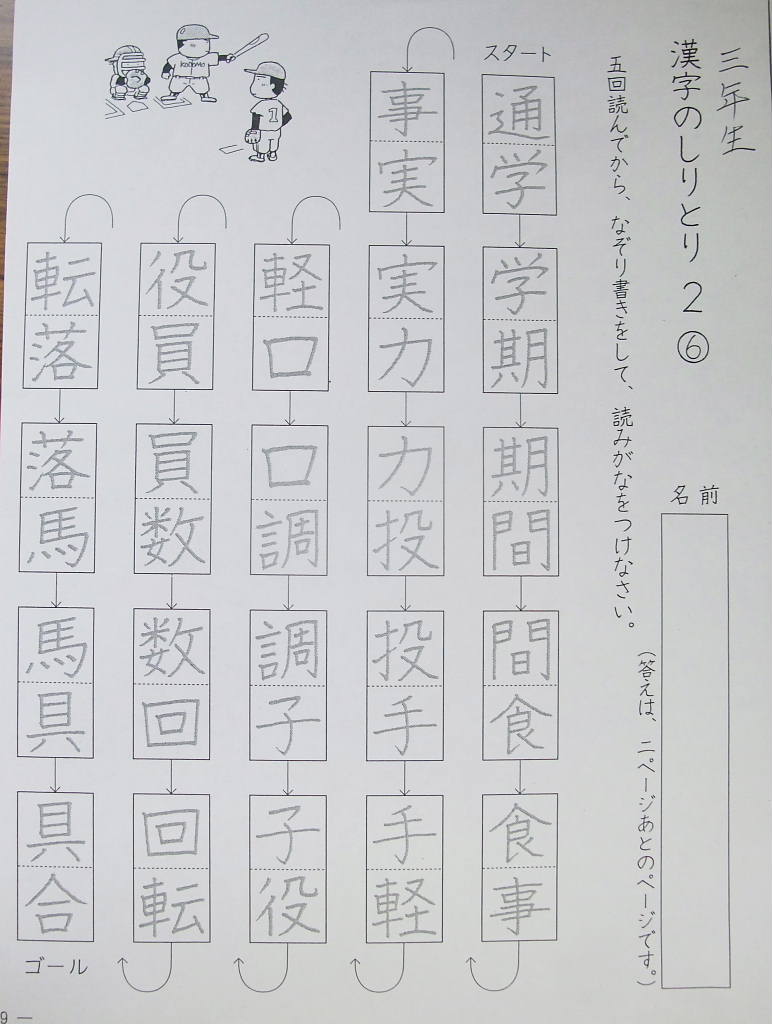 三年生
漢字のしりとり 2 ⑥
名前
五回読んでから、なぞり書きをして、読みがなをつけなさい。
(答えは、二ページあとのページです。)
スタート
通学
学期
期間
間食
食事
事実
実力
力投
投手
手軽
軽口
口調
調子
子役
役員
員数
数回
回転
転落
落馬
馬具
具合
ゴール
KODOMO
1
9 —